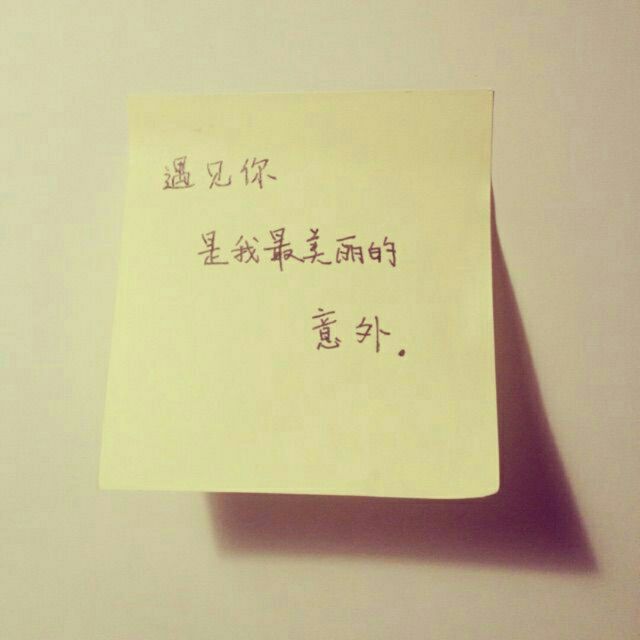 遇见你
是我最美丽的
意外.